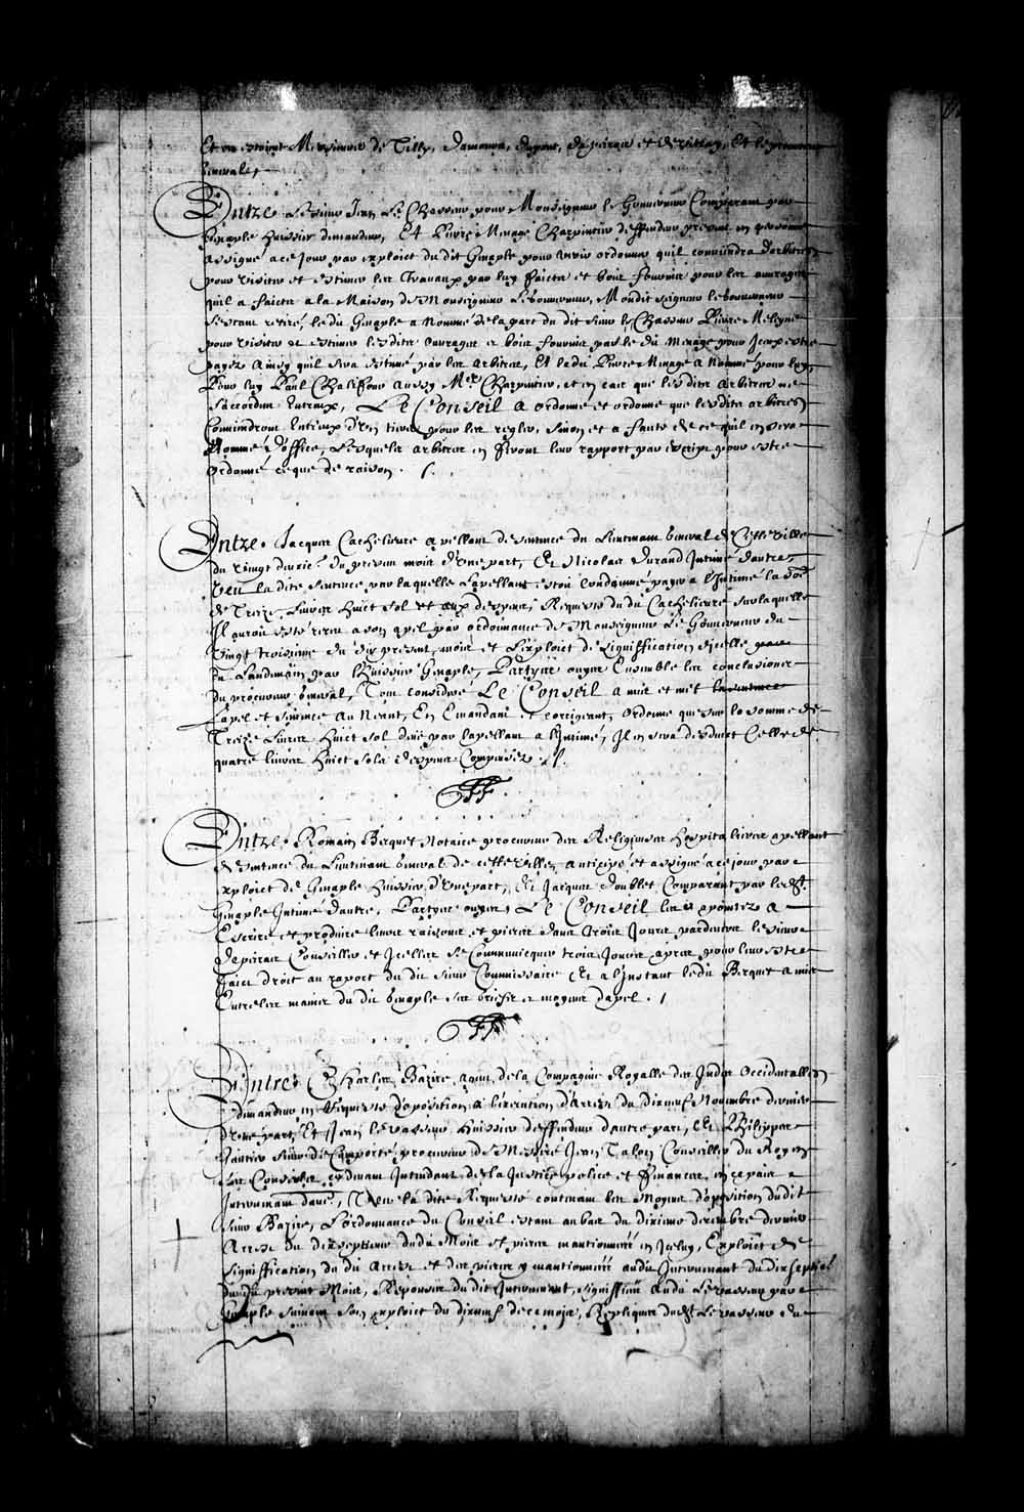 Et ou estoient Messieurs de Tilly, Damours, Dupont, Depeiras et de Vitray, Et le procureur
General,
Entre Le sieur Jean Le Chasseur pour Monseigneur le Gouverneur Comparant par
Genaple huissier demandeur, Et Pierre Menage Charpentier deffendeur present en personne
assigné a ce jour par exploict du dit Genaple pour veoir ordonner quil conviendra d'arbitres
pour visiter et estimer les travaux par luy faicts et bois fourni pour les ouvrages
quil a faicts a la Maison de Monseigneur le Gouverneur, Mondit seigneur le Gouverneur
sestant retiré, ledit Genaple a Nommé de la part du dit sieur le Chasseur Pierre
pour visiter et estimer lesdits ouvrages et bois fournis par le dit Menage pour Iceux estre
payez ainsy quil sera estimé par les arbitres, Et ledit Pierre Menage a Nommé pour luy,
Pour luy Paul Chalifour aussy Mre Charpentier, et en cas que lesdits arbitres ne
saccordent Entreux, Le Conseil a ordonné et ordonne que lesdits arbitres
Conviendront Entreux d'un tiers pour les regler, sinon et a faute de ce quil en sera
Nommé d'office, Lesquels arbitres en feront leur rapport par escript pour estre
Ordonné ce que de raison.
Entre Jacques Cachelievre apellant de sentence du Lieutenant General de Cette ville
du vingt du present mois d'une part, Et Nicolas Durand Intimé dautre,
Veu la dite sentence par laquelle l'apellant estoit condamné payer a l'Intimé la some
de Treize Livres huict sol et aux despens, Requeste dudit Cachelievre sur laquelle
Il auroit esté receu a son apel par ordonnance de Monseigneur Le Gouverneur du
vingt troisieme du dit present mois et L'exploict de signiffication dicelle
du Landemain par huissier Genaple, Partyes ouyes Ensemble les conclusions
du procureur General, Tout consideré Le Conseil a mis et met la sentence
Lapel et sentence au Neant, En Emandant et corrigeant, Ordonne que sur la somme de
Treize Livres huict sol deue par lapellant a l'Intimé, Il en sera desduict Celle de
quatre livres huict sols despens Compensez.
Entre Romain Becquet Notaire procureur des Religieuses hospitalieres apellant
de sentence du Lieutenant General de cette ville, anticipé et assigné a ce jour par
exploict de Genaple huissier d'une part, Et Jacques Doublet Comparant par led.
Genaple Intimé dautre, Partyes ouyes, Le Conseil les a apointez a
Escrire et produire leurs raisons et pieces dans trois Jours pardevers le sieur
Depeiras Conseiller et Icelles se Communiquer trois Jours apres pour leur estre
faict droit au raport du dit sieur Commissaire Et a l'Instant ledit Becquet a mis
Entre les mains du dit Genaple ses briefs et moyens dapel.
Entre Charles Bazire agent de la Compagnie Royalle des Indes Occidentalles
demandeur en Requeste d'oposition a l'execution d'Arrest du dix neuf Novembre dernier
d'une part, Et Jean levasseur huissier deffendeur dautre part, Et Philippes
Gautier sieur de Comporté procureur de Messire Jean Talon Conseiller du Roy en
ses Conseils, cy devant Intendant de la Justice police et Finances en ce païs
Intervenant dautre, Veu la dite Requeste contenant les Moyens d'oposition du dit
sieur Bazire, L'ordonnance du Conseil estant au bas du dixieme decembre dernier
Arrest du dixseptieme dudit Mois et pieces mantionnées en Iceluy, Exploict de
signiffication du dit Arrest et des pieces y mantionnées audit Intervenant du dixseptieme
du present Mois, Responses du dit Intervenant, signiffiées audit Levasseur par
Genaple suivant son exploict du dixneuf de ce mois, Repliques dudit Levasseur du